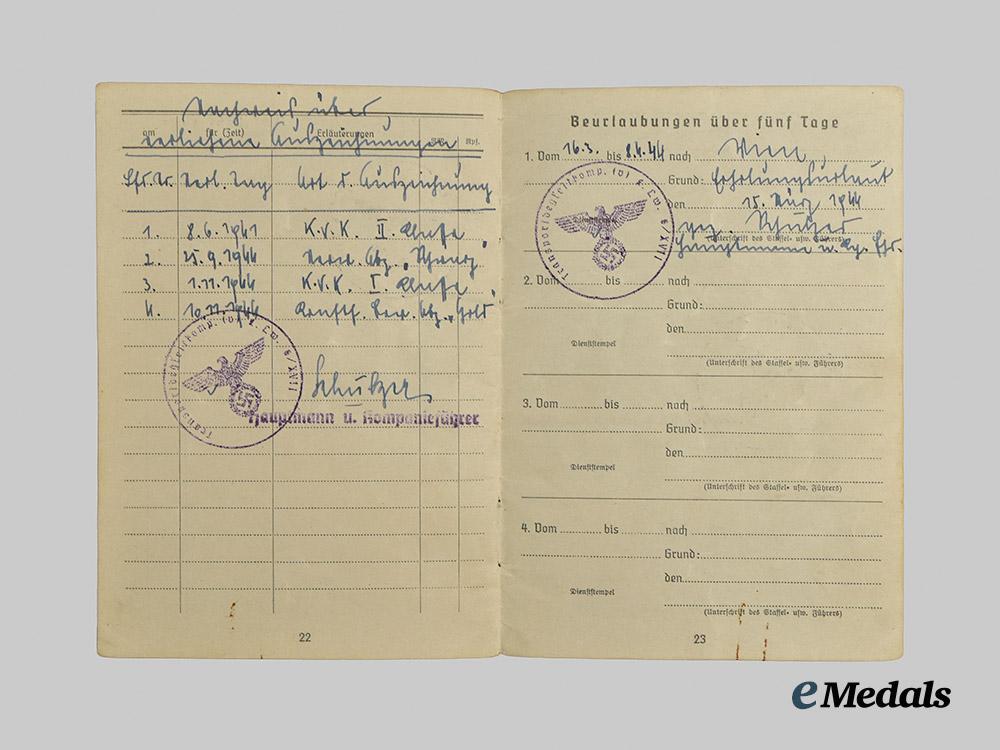 Nachweis über
am für (Zeit) Erläuterungen RM Rpf.
verliehene Auszeichnungen
Lfd. Nr. Verl. Tag Art d. Auszeichnung
1. 8.6.1941 K.V.K. II. Klasse
2. 25.9.1944 Verw. Abz. „Schwarz“
3. 1.11.1944 K.V.K. I. Klasse
4. 10.11.1944 Kraftf. Bew. Abz. „Gold“
Transportbegleitkomp. (v) d. Lw. 6/XVII
Schulzer
Hauptmann u. Kompanieführer
22
Beurlaubungen über fünf Tage
1. Vom 16.3. bis 8.4.44 nach Wien,
Grund: Erholungsurlaub
den 15. März 1944
gez. Schulzer
(Unterschrift des Staffel- usw. Führers)
Hauptmann u. Kp. Fhr.
Transportbegleitkomp. (v) d. Lw. 6/XVII
Dienststempel
2. Vom bis nach
Grund:
den
Dienststempel
(Unterschrift des Staffel- usw. Führers)
3. Vom bis nach
Grund:
den
Dienststempel
(Unterschrift des Staffel- usw. Führers)
4. Vom bis nach
Grund:
den
Dienststempel
(Unterschrift des Staffel- usw. Führers)
23
eMedals